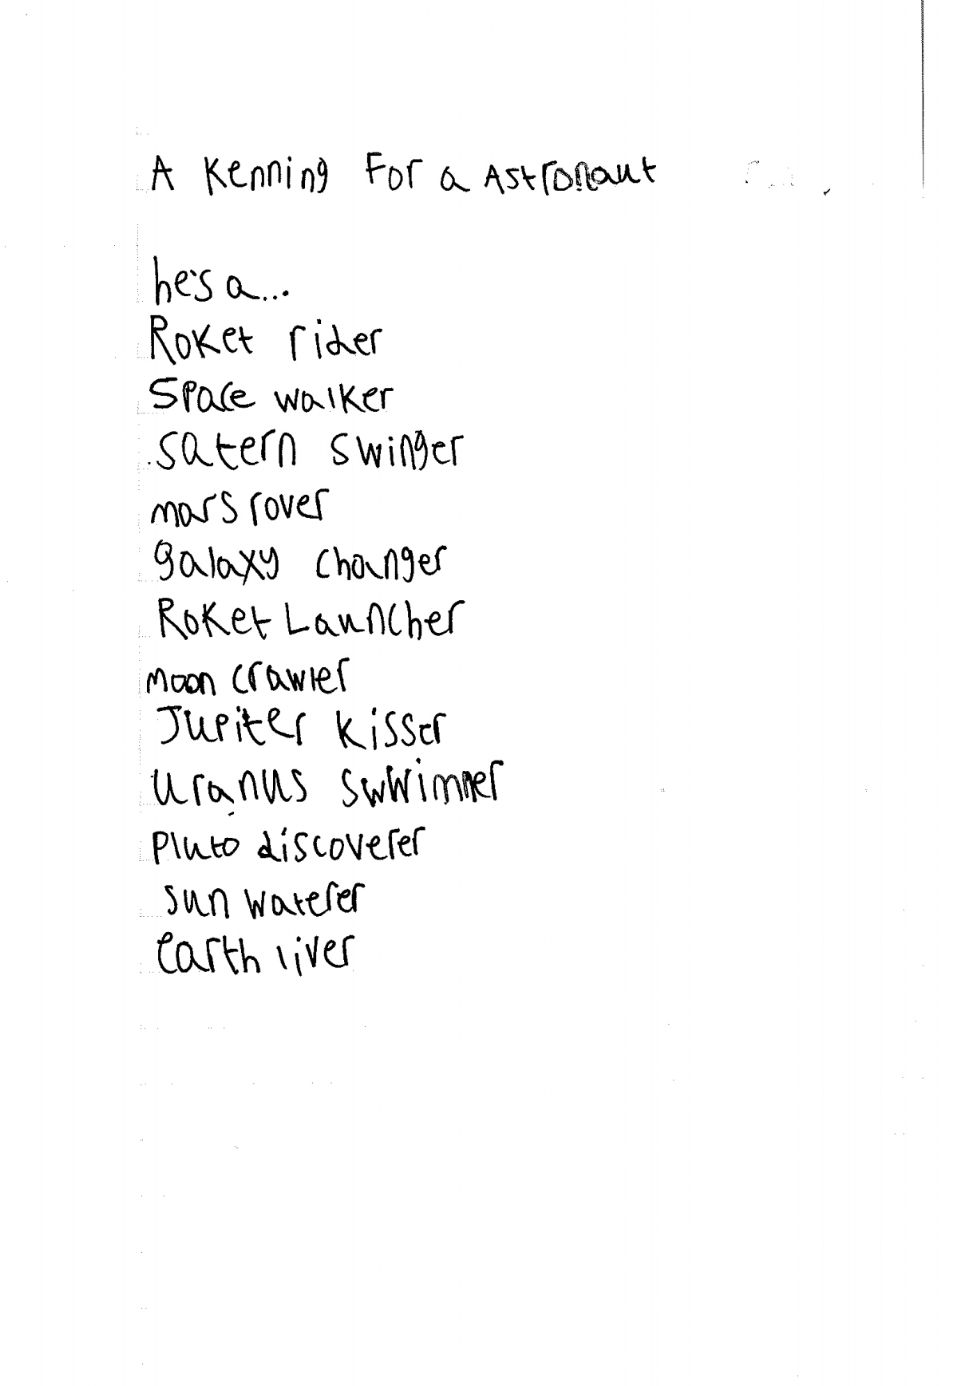 A Kenning For a Astronaut
he's a...
Roket rider
Space walker
Satern swinger
mars rover
galaxy changer
Roket Launcher
Moon crawler
Jupiter kisser
Uranus swwimmer
Pluto discoverer
Sun waterer
earth liver